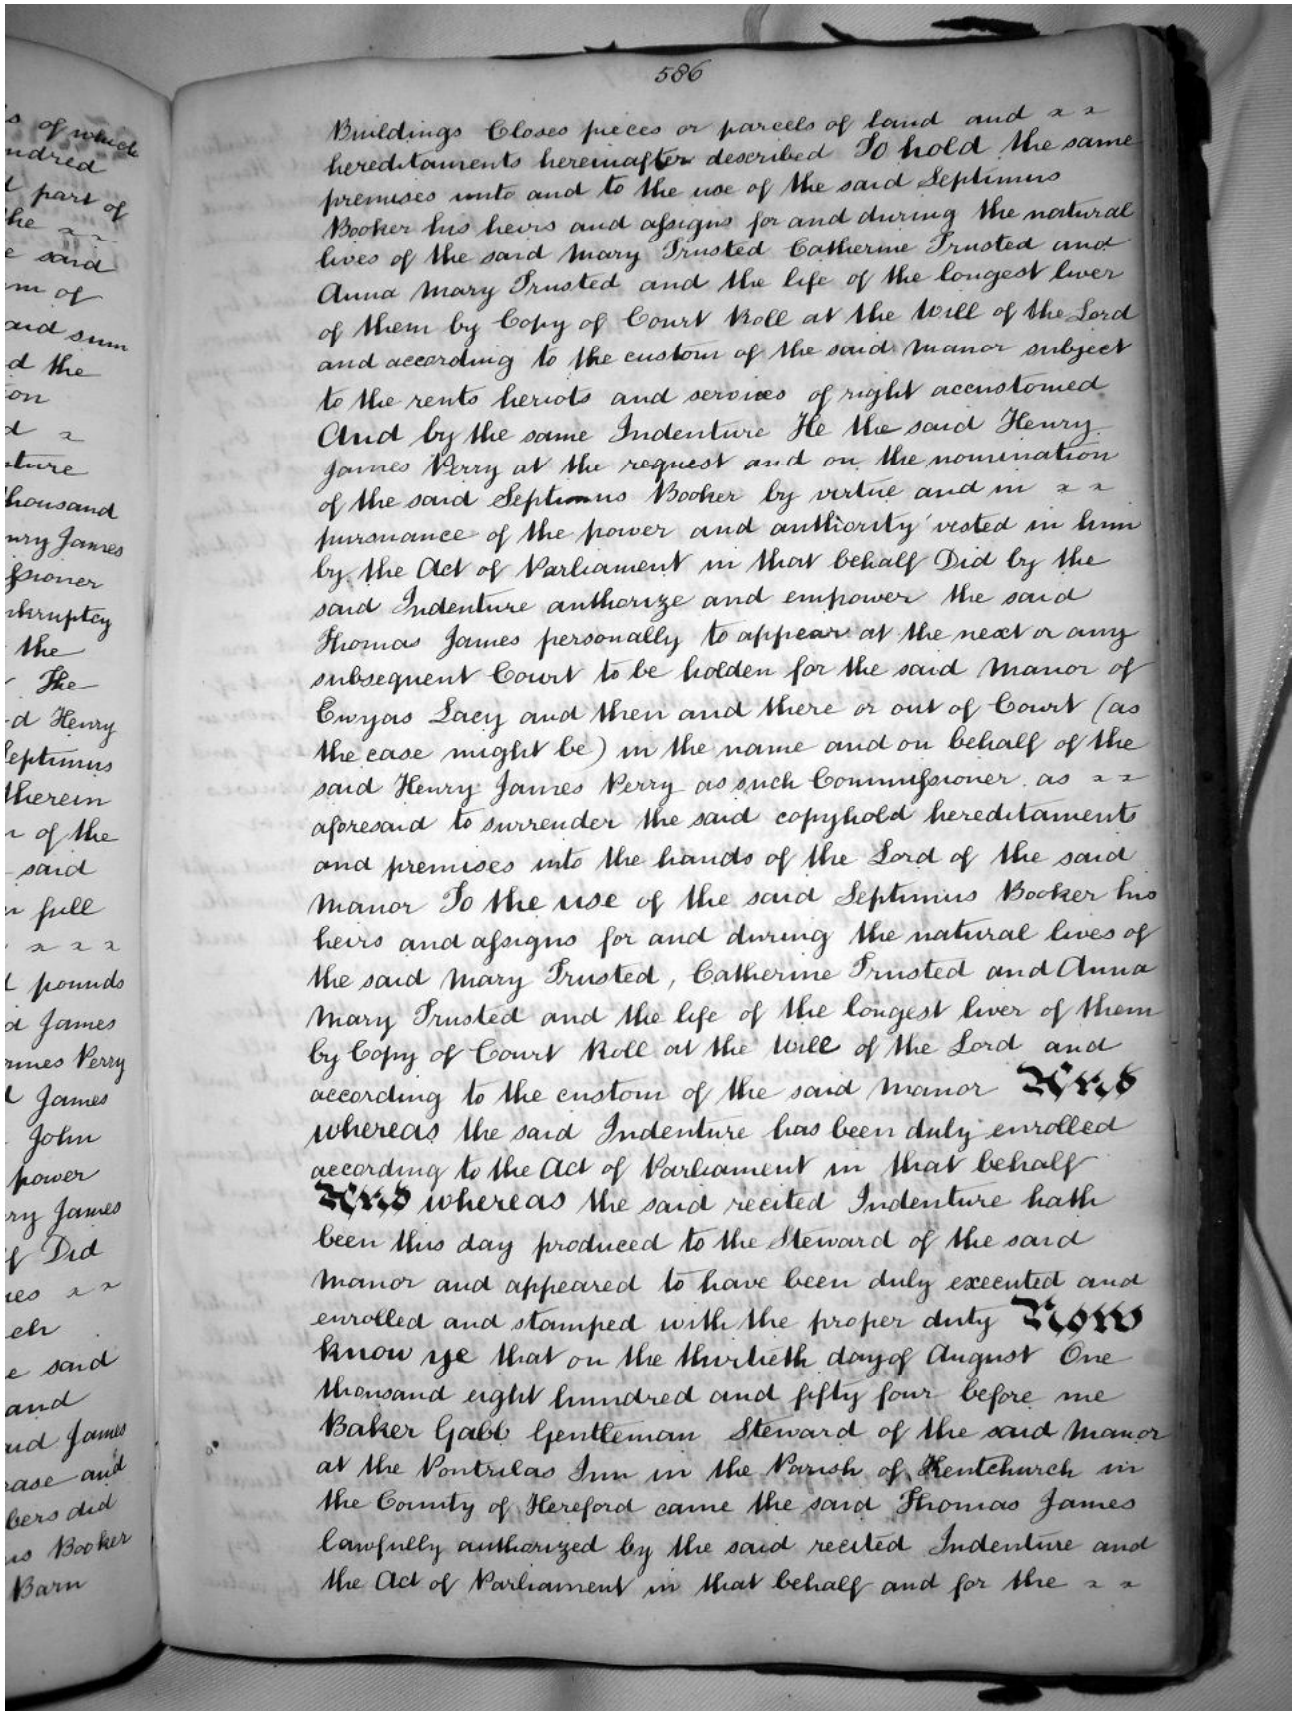 s of which
ndred
d part of
the
e said
m of
aid sum
d the
on
d
ture
thousand
nry James
ssioner
nkruptcy
the
The
d Henry
Septimus
therein
n of the
said
n full
pounds
d James
ames Perry
d James
John
power
ry James
f Did
es
ch
e said
and
aid James
ease and
bers did
us Booker
Barn
586
Buildings Closes pieces or parcels of land and
hereditaments hereinafter described To hold the same
premises unto and to the use of the said Septimus
Booker his heirs and assigns for and during the natural
lives of the said Mary Trusted Catherine Trusted and
Anna Mary Trusted and the life of the longest liver
of them by Copy of Court Roll at the Will of the Lord
and according to the custom of the said Manor subject
to the rents heriots and services of right accustomed
And by the same Indenture He the said Henry
James Perry at the request and on the nomination
of the said Septimus Booker by virtue and in
pursuance of the power and authority vested in him
by the Act of Parliament in that behalf Did by the
said Indenture authorize and empower the said
Thomas James personally to appear at the next or any
subsequent Court to be holden for the said Manor of
Ewyas Lacy and then and there or out of Court (as
the case might be) in the name and on behalf of the
said Henry James Perry as such Commissioner as
aforesaid to surrender the said copyhold hereditaments
and premises into the hands of the Lord of the said
Manor To the use of the said Septimus Booker his
heirs and assigns for and during the natural lives of
the said Mary Trusted, Catherine Trusted and Anna
Mary Trusted and the life of the longest liver of them
by Copy of Court Roll at the Will of the Lord and
according to the custom of the said Manor And
whereas the said Indenture has been duly enrolled
according to the Act of Parliament in that behalf
And whereas the said recited Indenture hath
been this day produced to the Steward of the said
Manor and appeared to have been duly executed and
enrolled and stamped with the proper duty Now
know ye that on the thirtieth day of August One
thousand eight hundred and fifty four before me
Baker Gabb Gentleman Steward of the said Manor
at the Pontrilas Inn in the Parish of Kentchurch in
the County of Hereford came the said Thomas James
lawfully authorized by the said recited Indenture and
the Act of Parliament in that behalf and for the